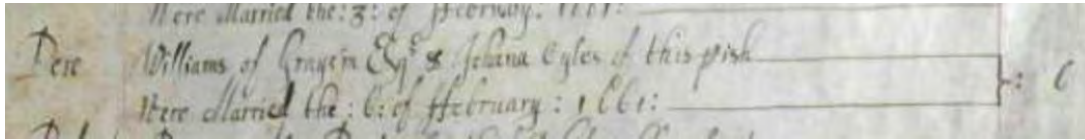 Were Married the : 3 : of ffebruary : 1661 :
Pere Williams of Grayein Esqr & Johana Eyles of this pish
Were Married the : 6 : of ffebruary : 1661 : 6